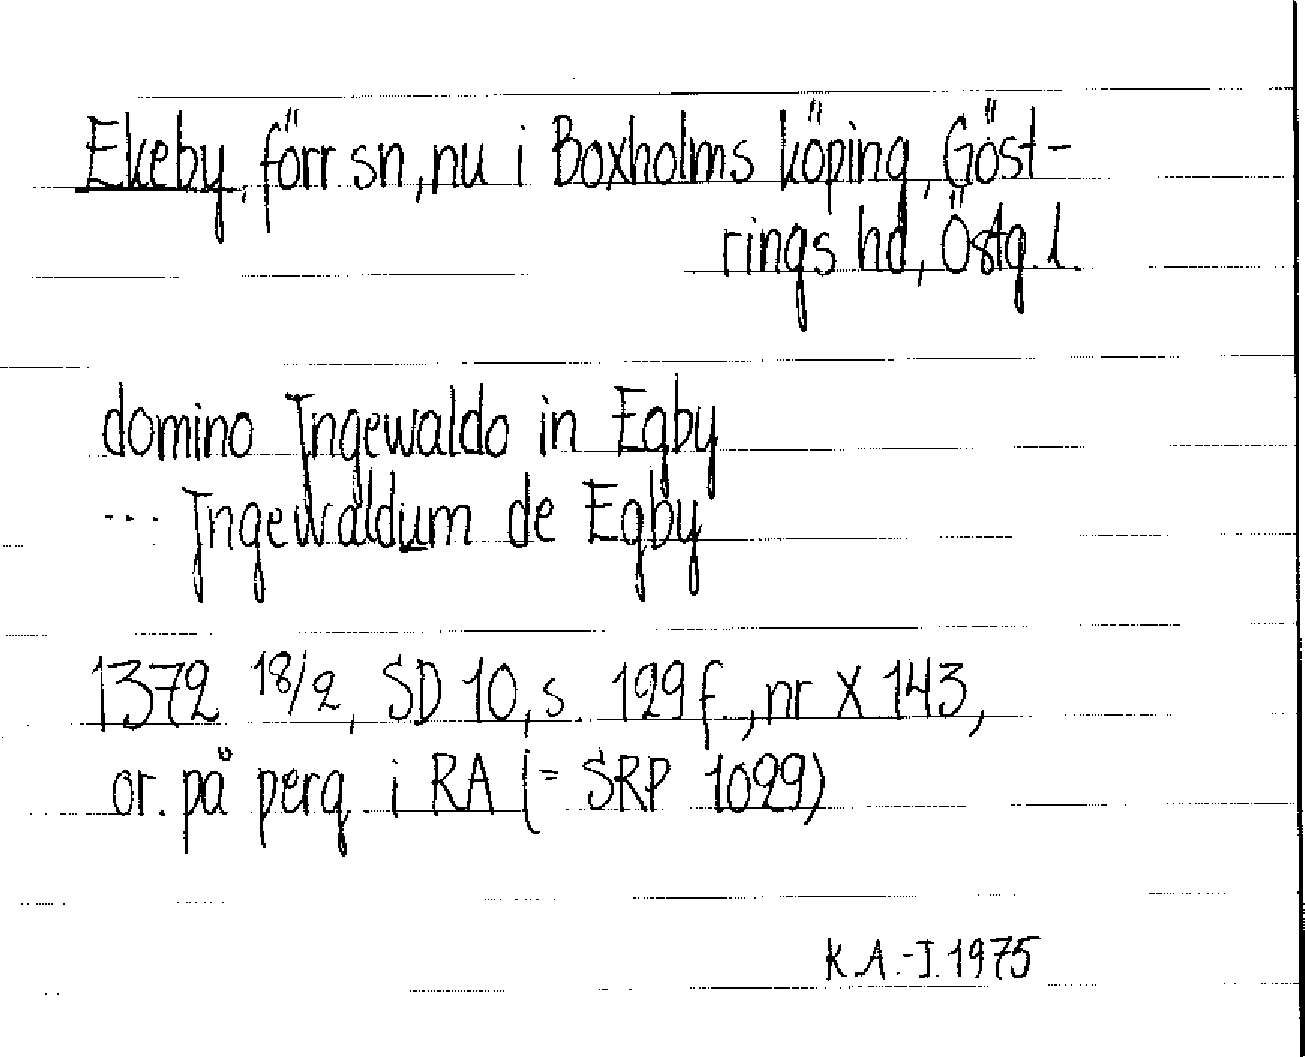 Ekeby, förr sn, nu i Boxholms köping, Göst-
rings hd, Östg. l.
domino Jngewaldo in Egby
... Jngewaldum de Egby
1372 18/2, SD 10, s. 129 f., nr X 143,
or. på perg. i RA (= SRP 1099)
K.A.-I. 1975